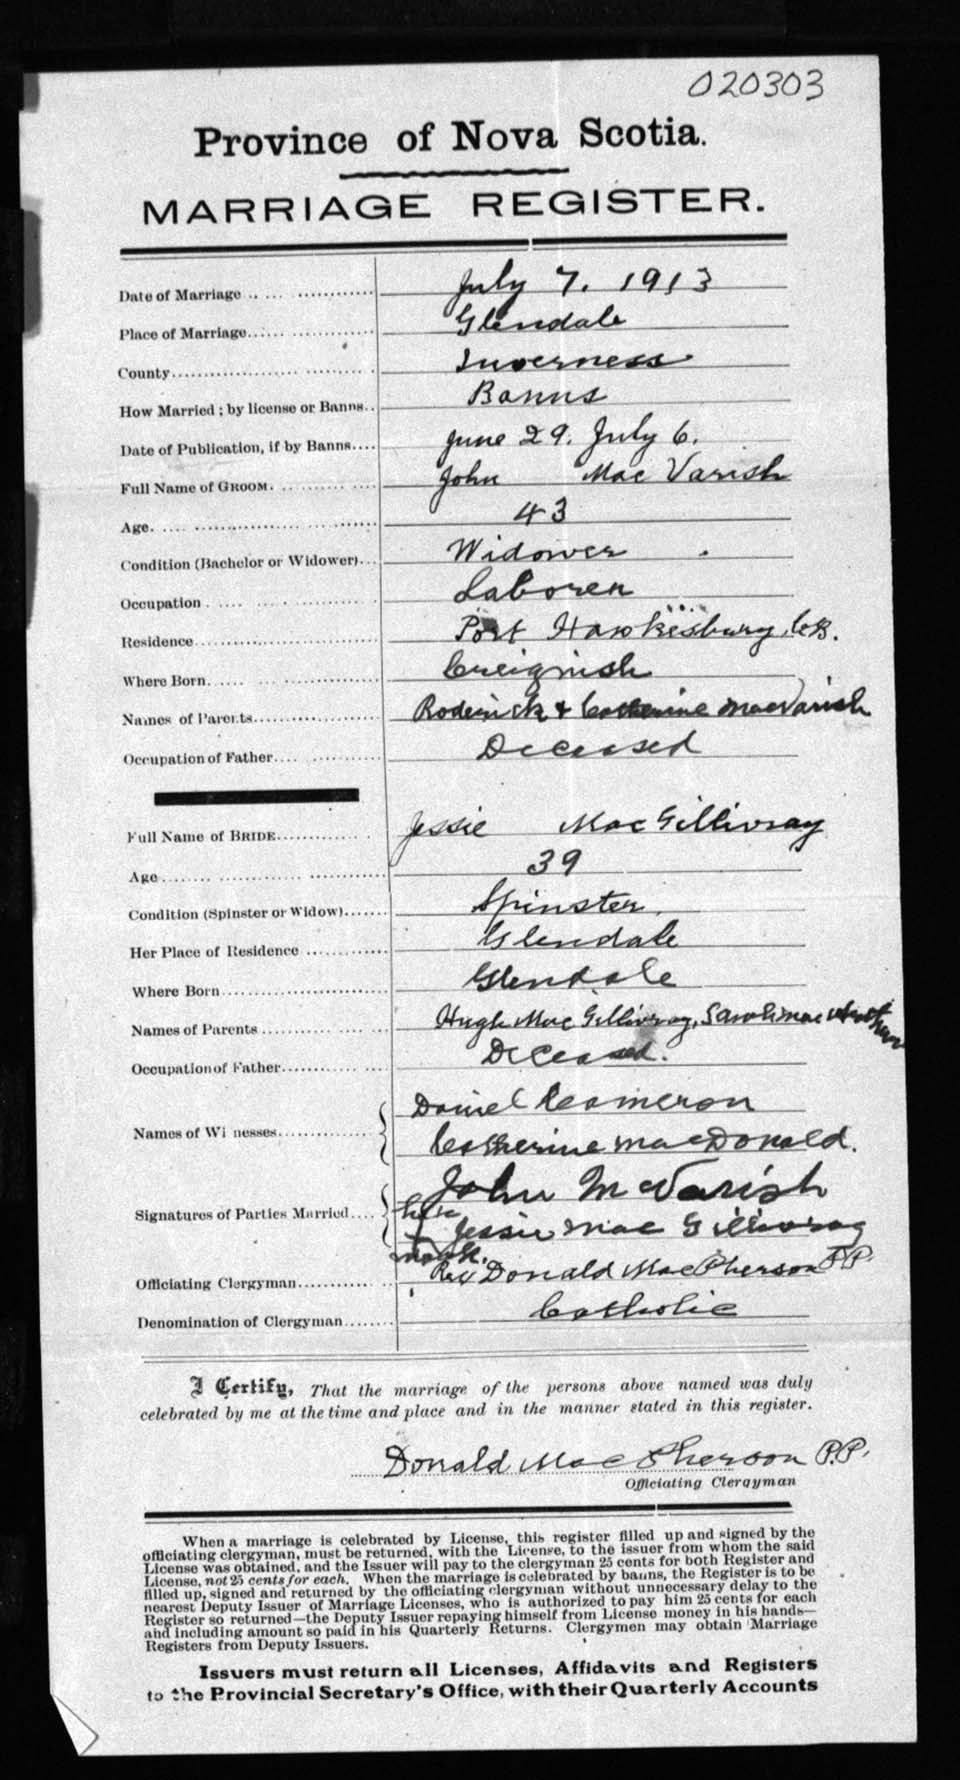 020303
Province of Nova Scotia.
MARRIAGE REGISTER.
Date of Marriage July 7. 1913
Place of Marriage Glendale
County Inverness
How Married; by license or Banns.. Banns
Date of Publication, if by Banns.... June 29. July 6.
Full Name of GROOM. John Mac Varish
Age. 43
Condition (Bachelor or Widower)... Widower
Occupation Laborer
Residence Port Hawkesbury, C.B.
Where Born Creignish
Names of Parents Roderick & Catherine MacVarish
Occupation of Father Deceased
Full Name of BRIDE Jessie Mac Gillivray
Age 39
Condition (Spinster or Widow) Spinster
Her Place of Residence Glendale
Where Born Glendale
Names of Parents Hugh Mac Gillivray, Sarah Mac
Occupation of Father Deceased.
Names of Witnesses Daniel Cameron
Catherine MacDonald.
Signatures of Parties Married John McVarish
her Jessie Mac Gillivray
mark.
Officiating Clergyman Rev Donald MacPherson P.P.
Denomination of Clergyman Catholic
I Certify, That the marriage of the persons above named was duly
celebrated by me at the time and place and in the manner stated in this register.
Donald MacPherson P.P.
Officiating Clergyman
When a marriage is celebrated by License, this register filled up and signed by the
officiating clergyman, must be returned, with the License, to the issuer from whom the said
License was obtained, and the Issuer will pay to the clergyman 25 cents for both Register and
License, not 25 cents for each. When the marriage is celebrated by banns, the Register is to be
filled up, signed and returned by the officiating clergyman without unnecessary delay to the
nearest Deputy Issuer of Marriage Licenses, who is authorized to pay him 25 cents for each
Register so returned—the Deputy Issuer repaying himself from License money in his hands—
and including amount so paid in his Quarterly Returns. Clergymen may obtain Marriage
Registers from Deputy Issuers.
Issuers must return all Licenses, Affidavits and Registers
to the Provincial Secretary's Office, with their Quarterly Accounts